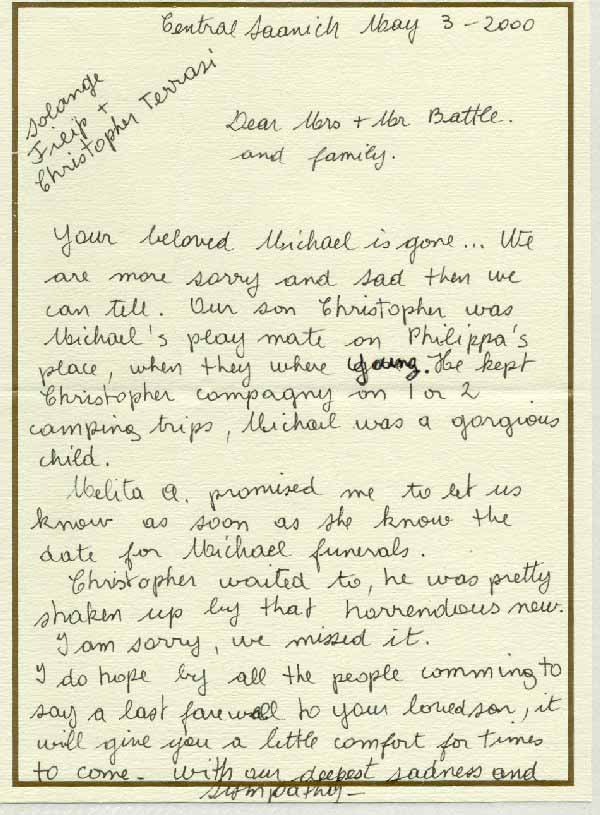 Central Saanich May 3 - 2000
Solange
Filip +
Christopher Terrasi
Dear Mrs + Mr Battle.
and family.
Your beloved Michael is gone... We
are more sorry and sad then we
can tell. Our son Christopher was
Michael's play mate on Philippa's
place, when they where young. He kept
Christopher compagny on 1 or 2
camping trips, Michael was a gorgious
child.
Melita A. promised me to let us
know as soon as she know the
date for Michael funerals.
Christopher waited to, he was pretty
shaken up by that horrendious new.
I am sorry, we missed it.
I do hope by all the people comming to
say a last farewell to your loved son, it
will give you a little comfort for times
to come - with our deepest sadness and
simpathy -